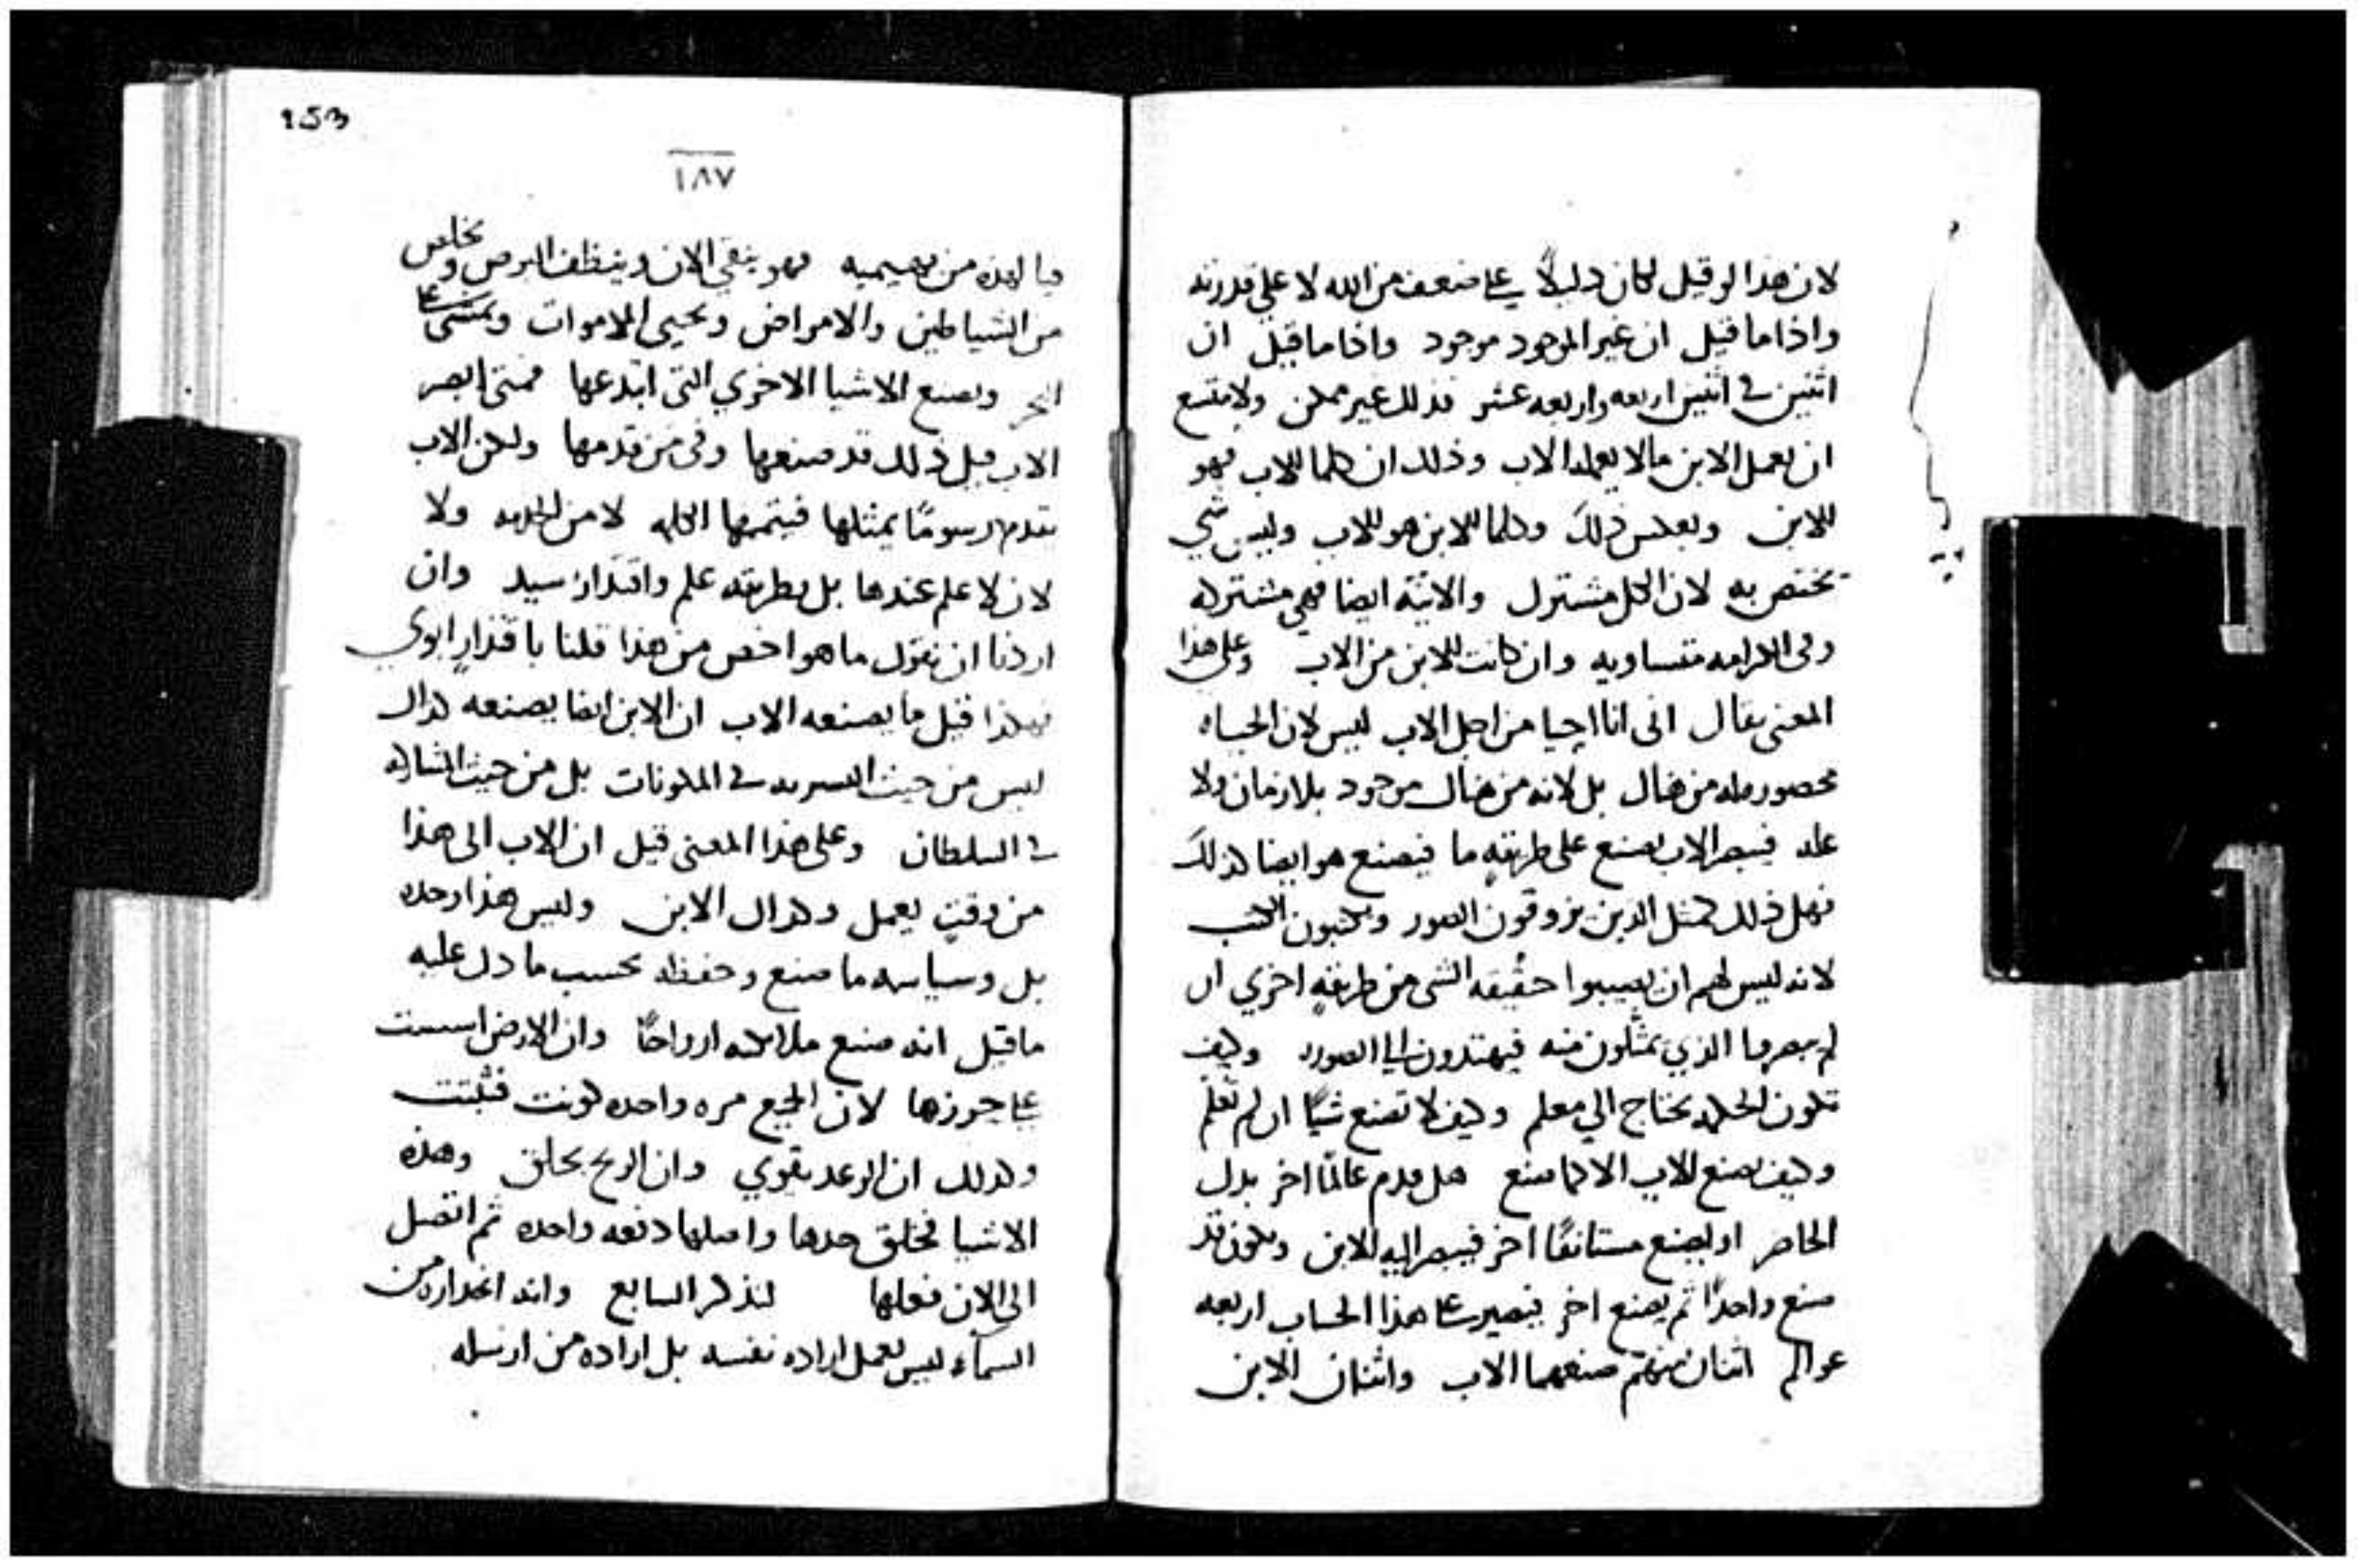 لان هذا لو قيل لكان دليلاً على ضعف من الله لا على قدرته
واذا ما قيل ان غير الموجود موجود واذا ما قيل ان
اثنين في اثنين اربعه واربعه عشر فذلك غير ممكن ولا يقنع
ان يعمل الابن مالا يعمله الاب وذلك ان كلما للاب فهو
للابن وبعكس ذلك وكلما للابن هو للاب وليس شي
يختص به لان الكل مشترك والانيّه ايضا فهي مشتركه
وفي الكرامه متساويه وان كانت للابن من الاب وعلى هذا
المعنى يقال انى انا احيا من اجل الاب ليس لان الحياه
محصوره من هناك بل لانه من هناك موجود بلا زمان ولا
عله فيبصر الاب يصنع على طريقهٍ ما فيصنع هو ايضا كذلك
فهل ذلك كمثل الذين يزوقون الصور ويكتبون الكتب
لانه ليس لهم ان يصيبوا حقيقه الشى من طريقهٍ اخري ان
لم يبصروا الذي يمثلون منه فيهتدون الى الصوره وكيف
تكون الحكمه تحتاج الي معلم وكيف لا تصنع شيًا ان لم تعلم
وكيف يصنع الاب الا كما صنع هل قدم عالمًا اخر بدل
الحاضر او يصنع مستانفًا اخر فيبصر اليه الابن ويكون قد
صنع واحدًا ثم يصنع اخر فيصير على هذا الحساب اربعه
عوالم اثنان منهم صنعهما الاب واثنان الابن
153
١٨٧
فيا لهذه من بهيميه فهو ينقي الان وينظف البرص ويخلص
من الشياطين والامراض ويحيي الاموات ويمشى على
البحر ويصنع الاشيا الاخري التى ابتدعها فمتى ابصر
الاب قبل ذلك قد صنعها وفى من قدمها ولكن الاب
يقدم رسومًا يمثلها فيتممها الكلمه لا من الخدمه ولا
لان لا علم عندها بل بطريقه علم واقتدار سيد وان
اردنا ان نقول ما هو اخص من هذا قلنا باقتدارٍ ابوي
فهكذا قيل ما يصنعه الاب ان الابن ايضا يصنعه كذاك
ليس من حيث في المكونات بل من حيث المشاركه
في السلطان وعلى هذا المعنى قيل ان الاب الى هذا
من وقتٍ يعمل وكذاك الابن وليس هذا وحده
بل وسياسه ما صنع وحفظه بحسب ما دل عليه
ما قيل انه صنع ملايكته ارواحًا وان الارض اسست
على حورزها لان الجميع مره واحده كونت فثبتت
وكذلك ان الرعد يقوي وان الريح يخلق وهذه
الاشيا فخلق حدها واصلها دفعه واحده ثم اتصل
الى الان فعلها لنذكر السابع وانه انحداره من
السماء ليس يعمل اراده نفسه بل اراده من ارسله